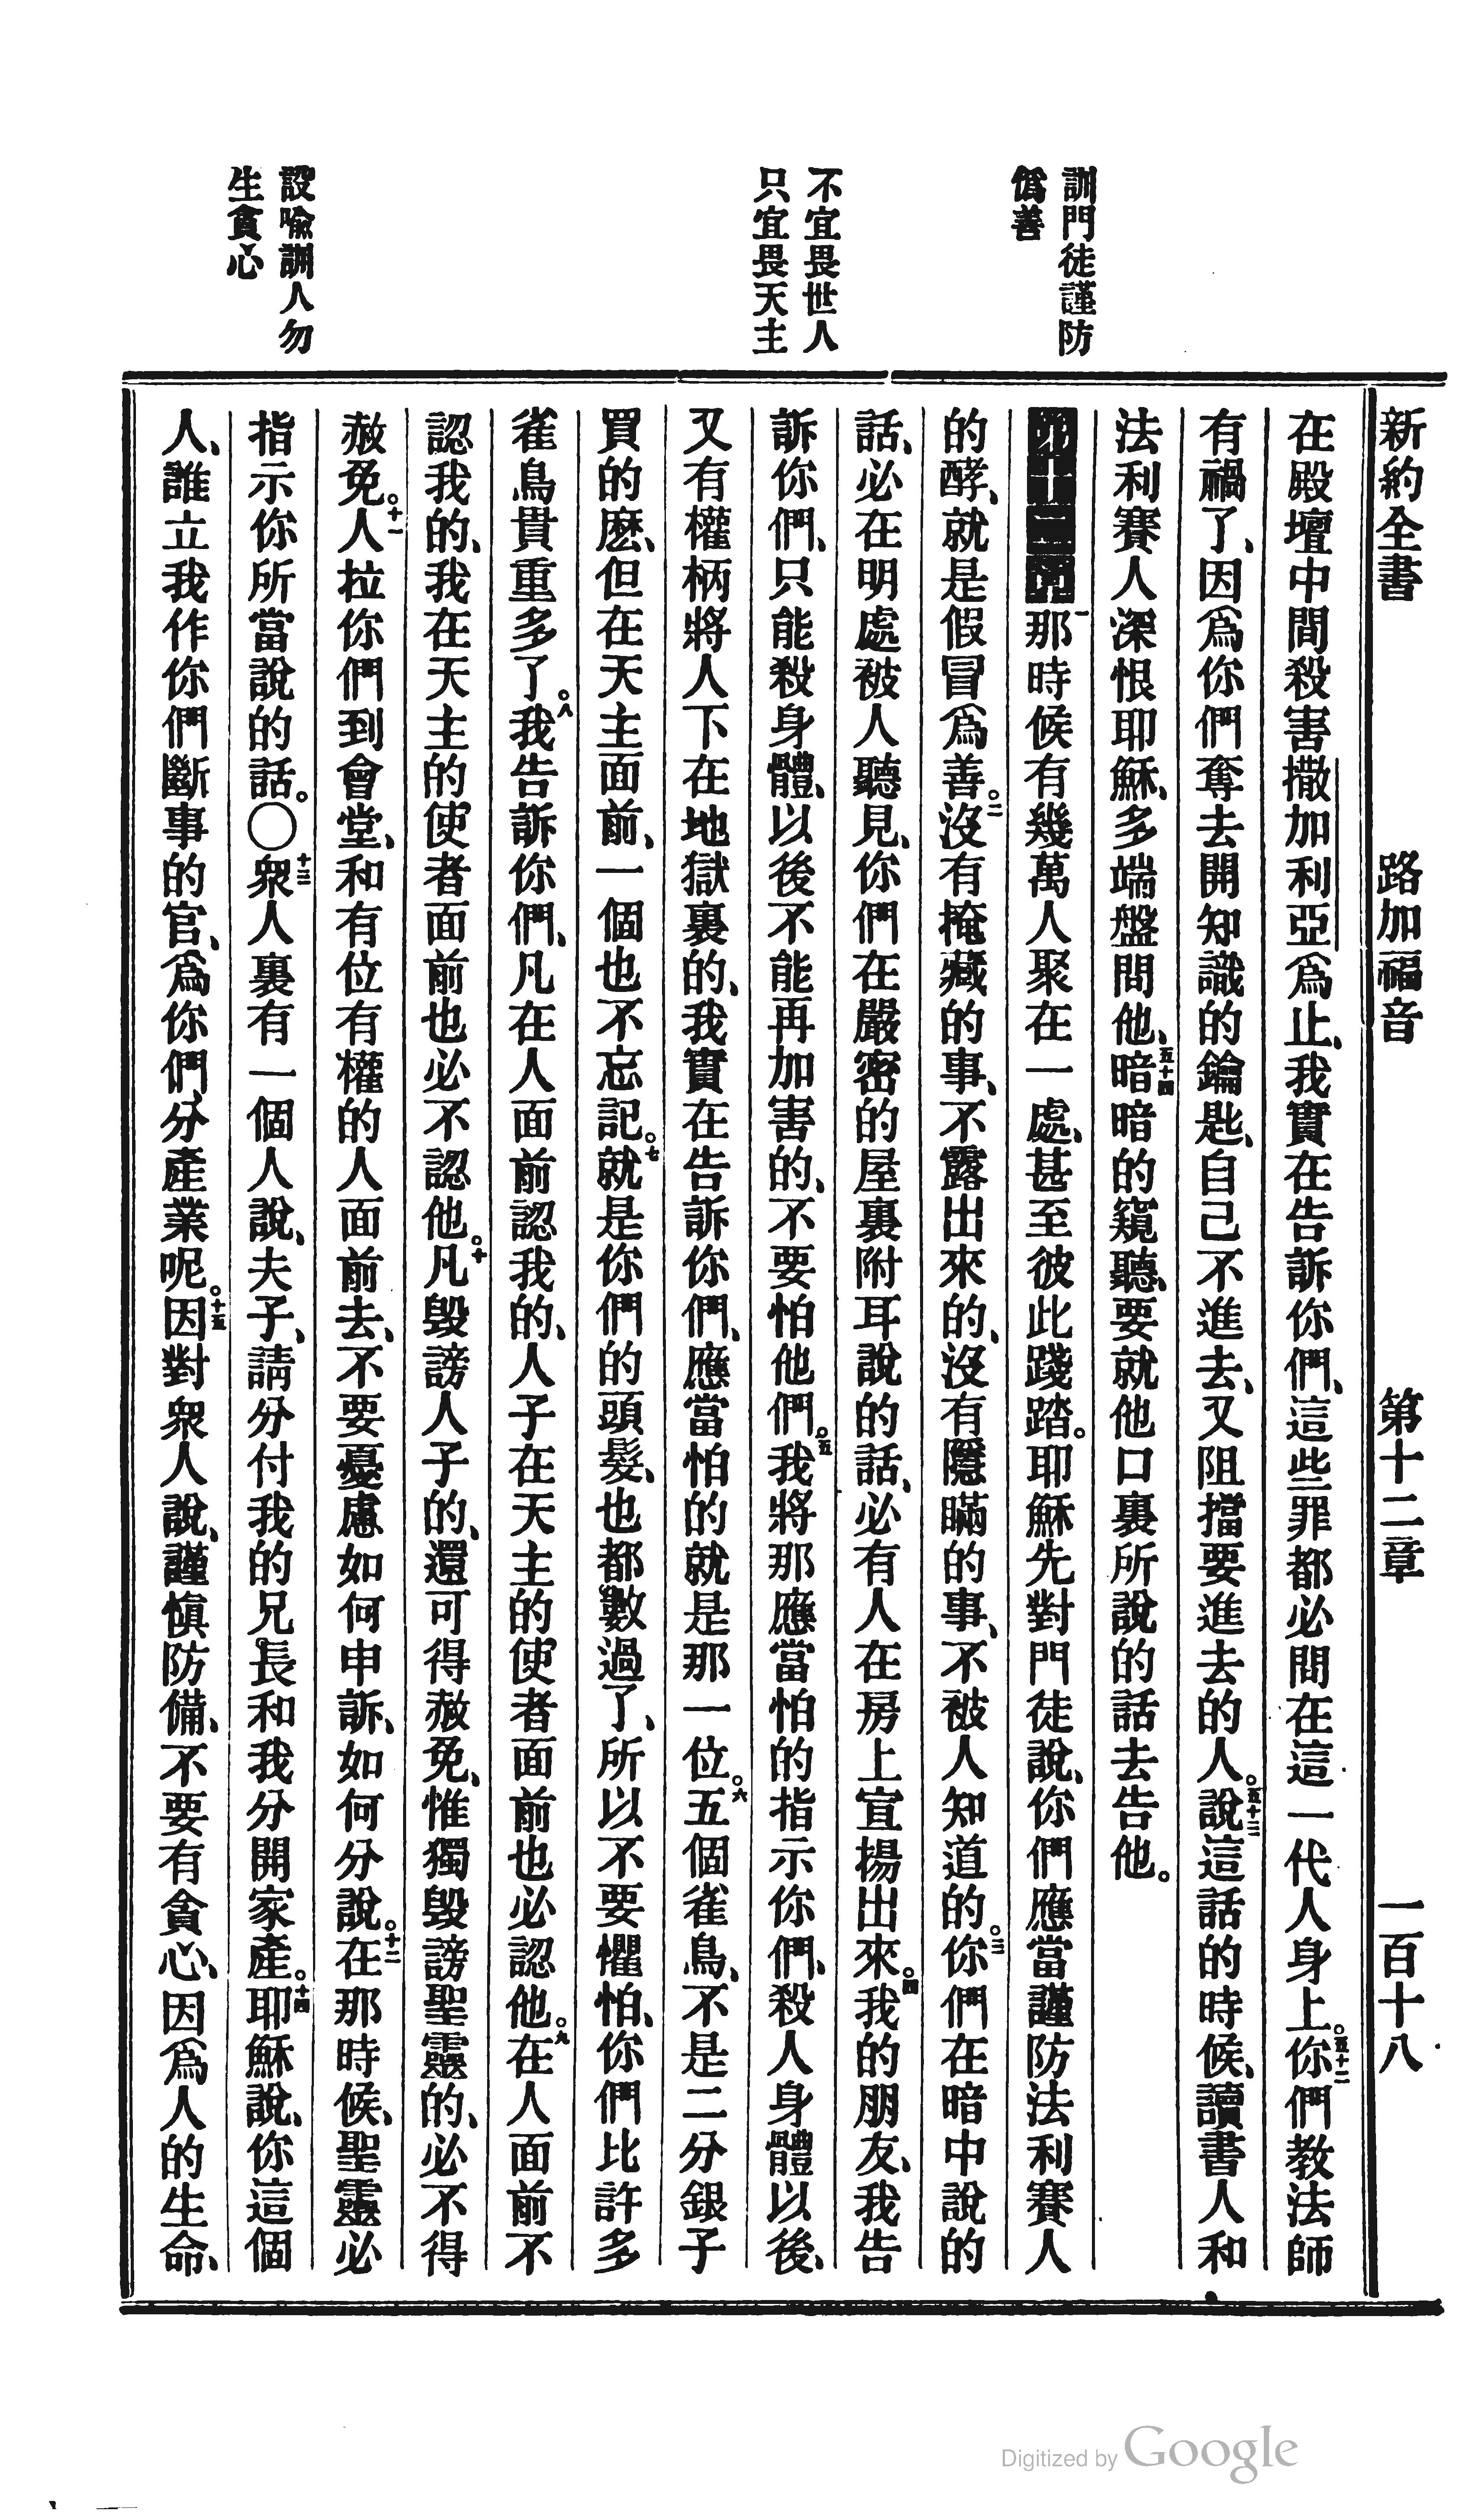 新約全書 路加福音 第十二章 一百十八
訓門徒謹防
僞善
不宜畏世人
只宜畏天主
設喩訓人勿
生貪心
在殿壇中間殺害撒加利亞爲止、我實在告訴你們、這些罪都必問在這一代人身上。五十二你們教法師
有禍了、因爲你們奪去開知識的鑰匙、自己不進去、又阻擋要進去的人。五十三說這話的時候、讀書人和
法利賽人深恨耶穌、多端盤問他、五十四暗暗的窺聽、要就他口裏所說的話去告他。
第十二章一那時候有幾萬人聚在一處、甚至彼此踐踏。耶穌先對門徒說、你們應當謹防法利賽人
的酵、就是假冒爲善。二沒有掩藏的事、不露出來的、沒有隱瞞的事、不被人知道的。三你們在暗中說的
話、必在明處被人聽見、你們在嚴密的屋裏附耳說的話、必有人在房上宣揚出來。四我的朋友、我告
訴你們、只能殺身體、以後不能再加害的、不要怕他們。五我將那應當怕的指示你們、殺人身體以後、
又有權柄將人下在地獄裏的、我實在告訴你們、應當怕的就是那一位。六五個雀鳥、不是二分銀子
買的麽、但在天主面前、一個也不忘記。七就是你們的頭髮、也都數過了、所以不要懼怕、你們比許多
雀鳥貴重多了。八我告訴你們、凡在人面前認我的、人子在天主的使者面前也必認他。九在人面前不
認我的、我在天主的使者面前也必不認他。十凡毀謗人子的、還可得赦免、惟獨毀謗聖靈的、必不得
赦免。十一人拉你們到會堂、和有位有權的人面前去、不要憂慮如何申訴、如何分說。十二在那時候、聖靈必
指示你所當說的話。〇十三衆人裏有一個人說、夫子、請分付我的兄長和我分開家產。十四耶穌說、你這個
人、誰立我作你們斷事的官、爲你們分產業呢。十五因對衆人說、謹愼防備、不要有貪心、因爲人的生命、
Digitized by Google